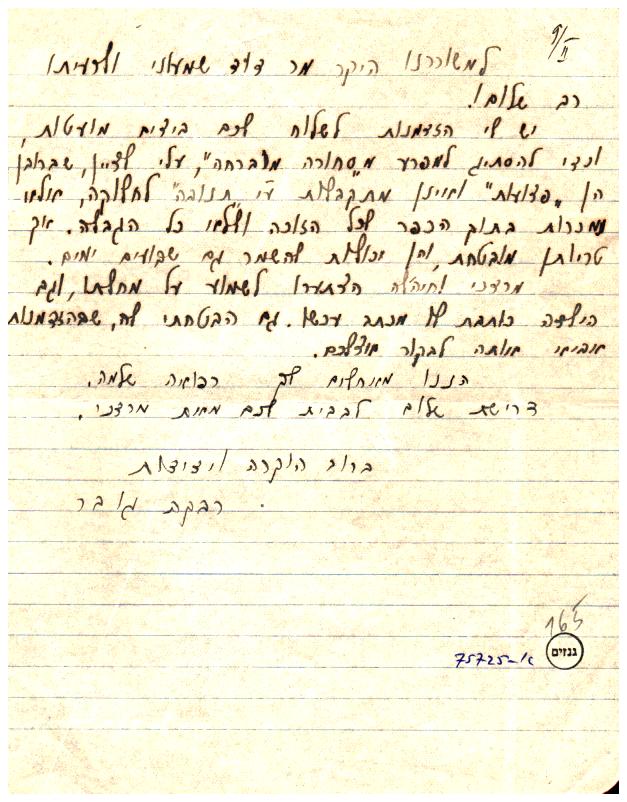 9/II
למשוררנו היקר מר דוד שמעוני ולרעיתו
רב שלום!
יש לי הזדמנות לשלוח לכם ביצים מועטות,
וכדי להסתייג למפרע מ"סחורה מוברחה", עלי לציין, שברובן
הן "פצועות" ואינן מתקבלות ע"י "תנובה" לחלוקה, אלא
נמכרות בתוך הכפר לכל הרוצה וללא כל הגבלה. אך
טריותן מובטחת, והן יכולות להשמר גם שבועיים ימים.
מרדכי וחיהלה הצטערו לשמוע על מחלתו, וגם
הילדה כותבת לו מכתב עכשו. גם הבטחתי לה, שבהזדמנות
אביאי אותה לבקור אצלכם.
הננו מאחלים לך רפואה שלמה.
דרישת שלום לבבית לכם מאת מרדכי.
ברוב הוקרה וידידות
רבקה גובר
165
גנזים
75725-א